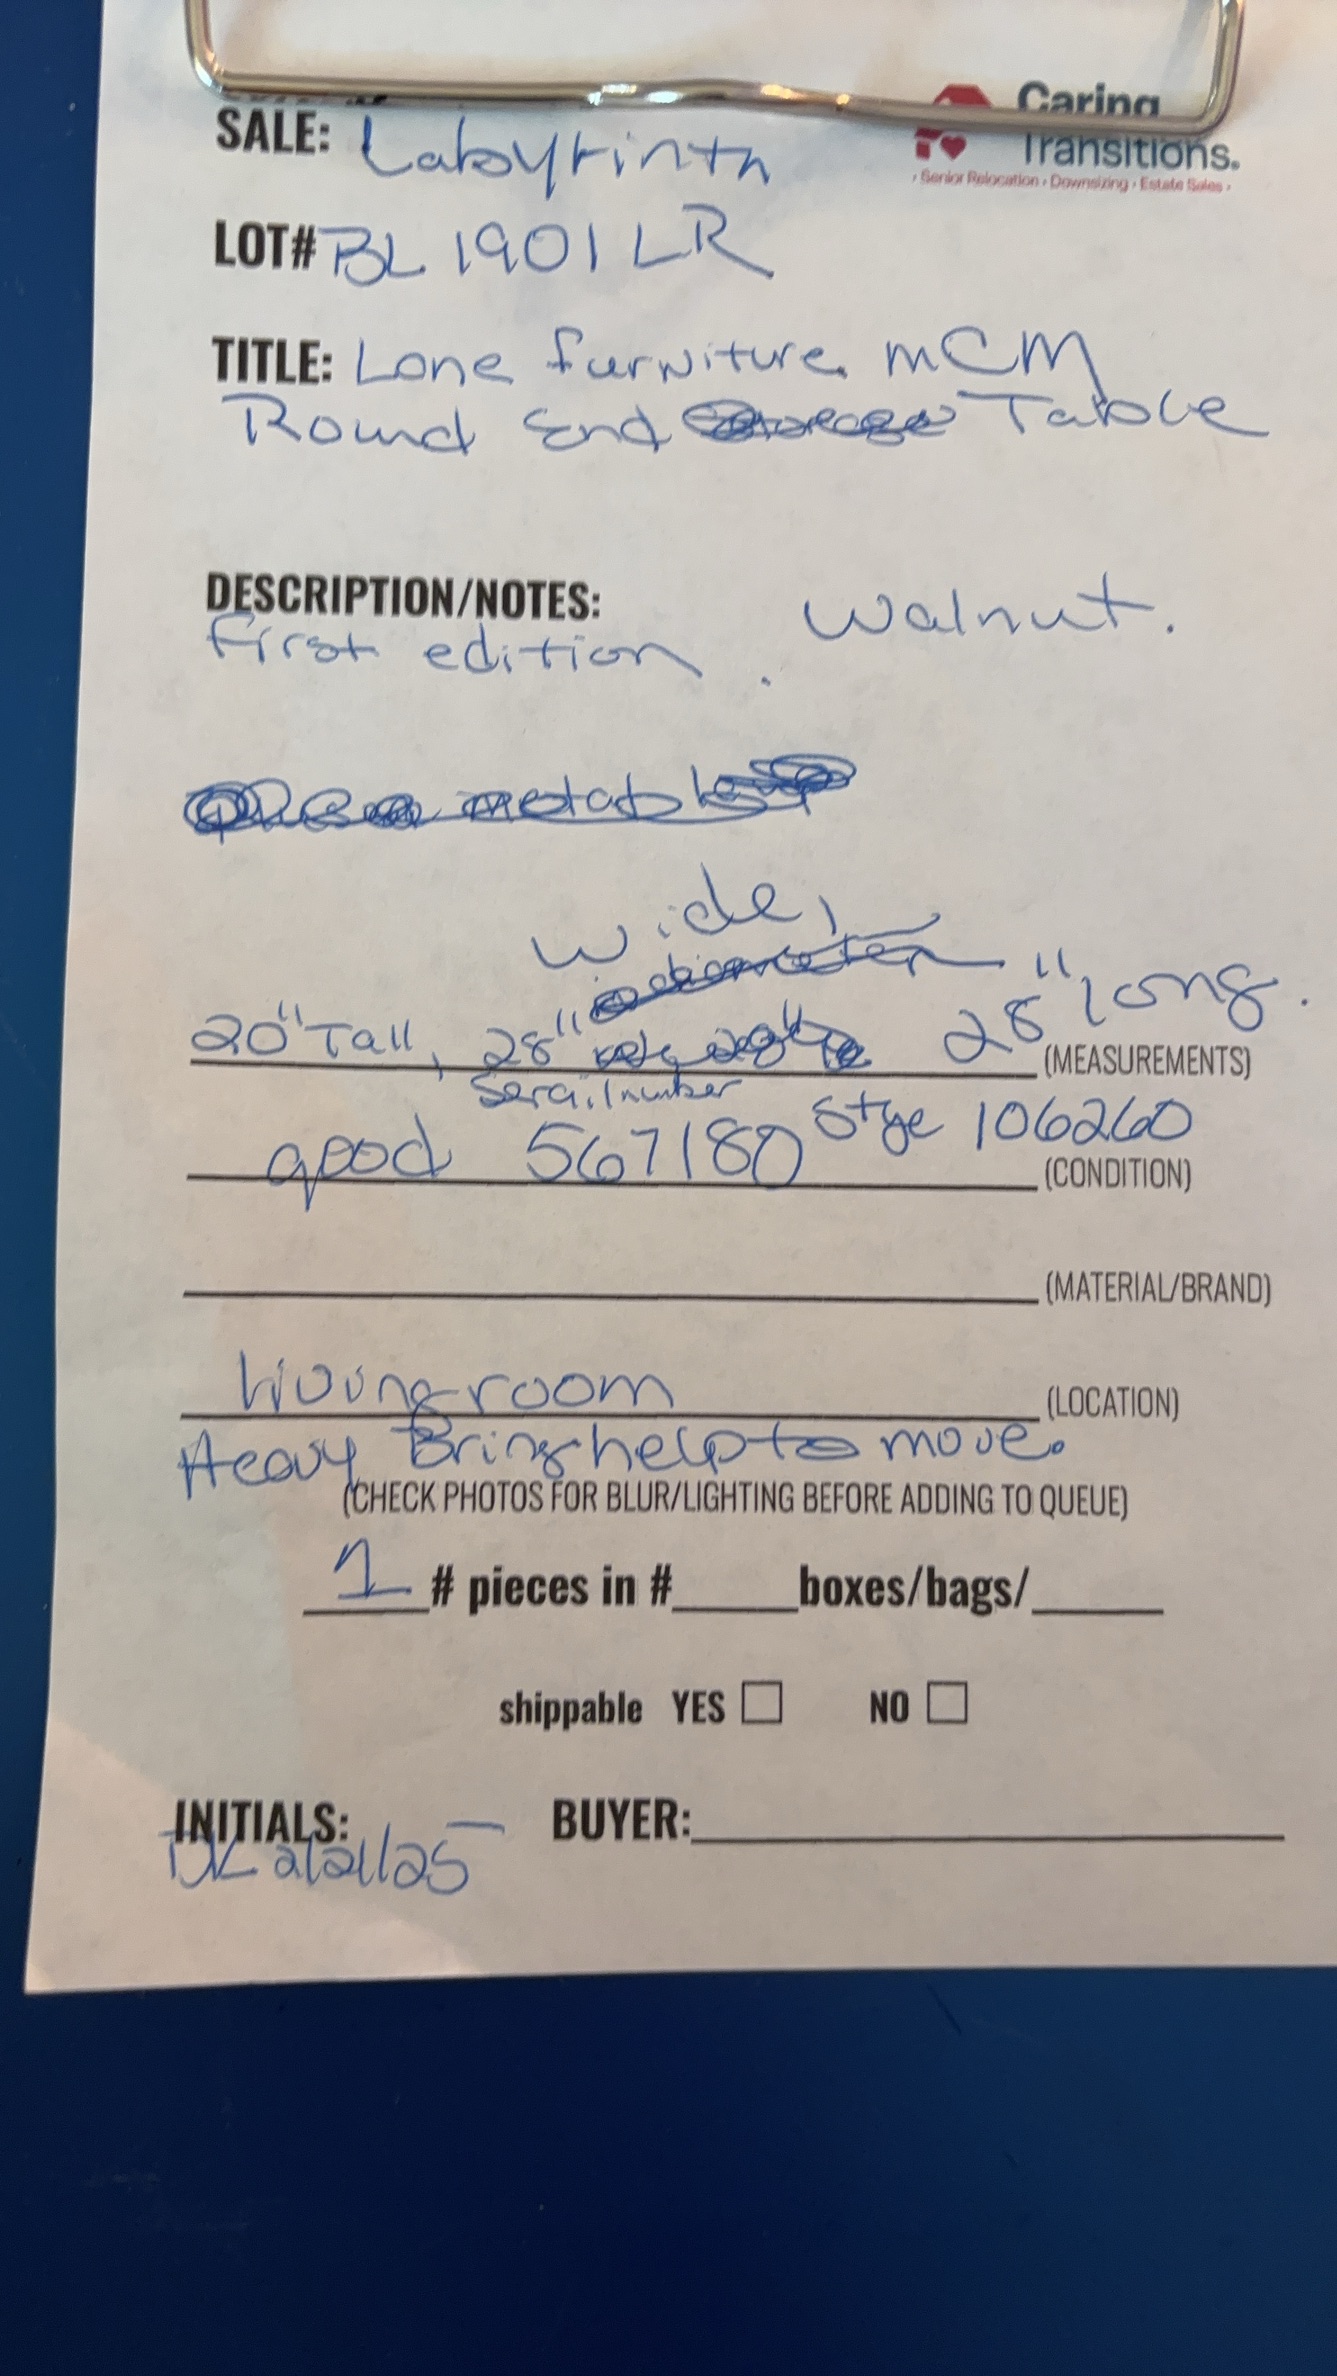 Caring
Transitions.
Senior Relocation • Downsizing • Estate Sales
SALE: Labyrinth
LOT# BL 1901 LR
TITLE: Lane furniture. mCM
Round End Table
DESCRIPTION/NOTES: Walnut.
First edition.
wide,
20" Tall, 28" 28" long.
(MEASUREMENTS)
Serail number
good 567180 Stye 106260
(CONDITION)
(MATERIAL/BRAND)
Living room (LOCATION)
Heavy Bring help to move.
(CHECK PHOTOS FOR BLUR/LIGHTING BEFORE ADDING TO QUEUE)
1 # pieces in # boxes/bags/
shippable YES NO
INITIALS: BUYER:
BL 2/21/25